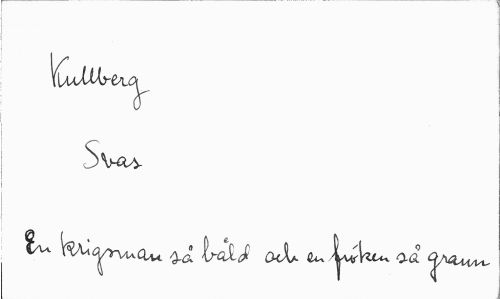 Kullberg
Svas
En krigsman så båld och en fröken så grann